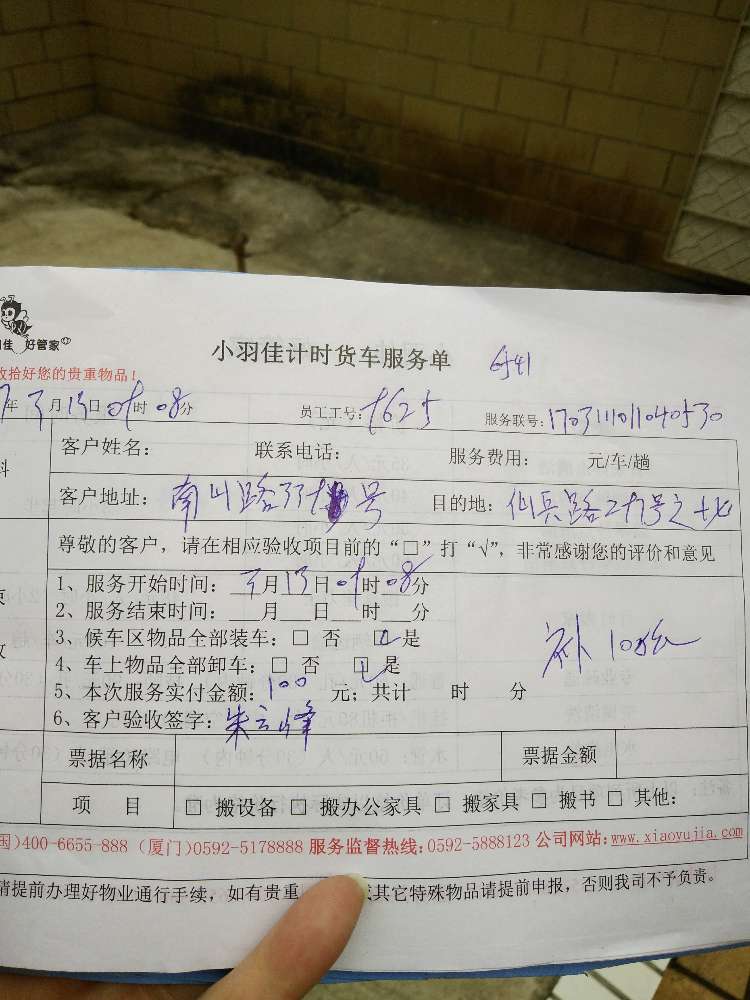 佳 好管家
小羽佳计时货车服务单
收拾好您的贵重物品！
年3月13日 时08分 员工工号： 服务联号：
客户姓名： 联系电话： 服务费用： 元/车/趟
客户地址：南山路 号 目的地：
尊敬的客户，请在相应验收项目前的“□”打“√”，非常感谢您的评价和意见
1、服务开始时间：3月13日 时08分
2、服务结束时间： 月 日 时 分
3、候车区物品全部装车：□ 否 □ 是
4、车上物品全部卸车：□ 否 □ 是
补100元
5、本次服务实付金额：100 元；共计 时 分
6、客户验收签字：朱云峰
票据名称 票据金额
项 目 □ 搬设备 □ 搬办公家具 □ 搬家具 □ 搬书 □ 其他：
国)400-6655-888 (厦门)0592-5178888 服务监督热线：0592-5888123 公司网站：www.xiaoyujia.com
请提前办理好物业通行手续，如有贵重 或其它特殊物品请提前申报，否则我司不予负责。